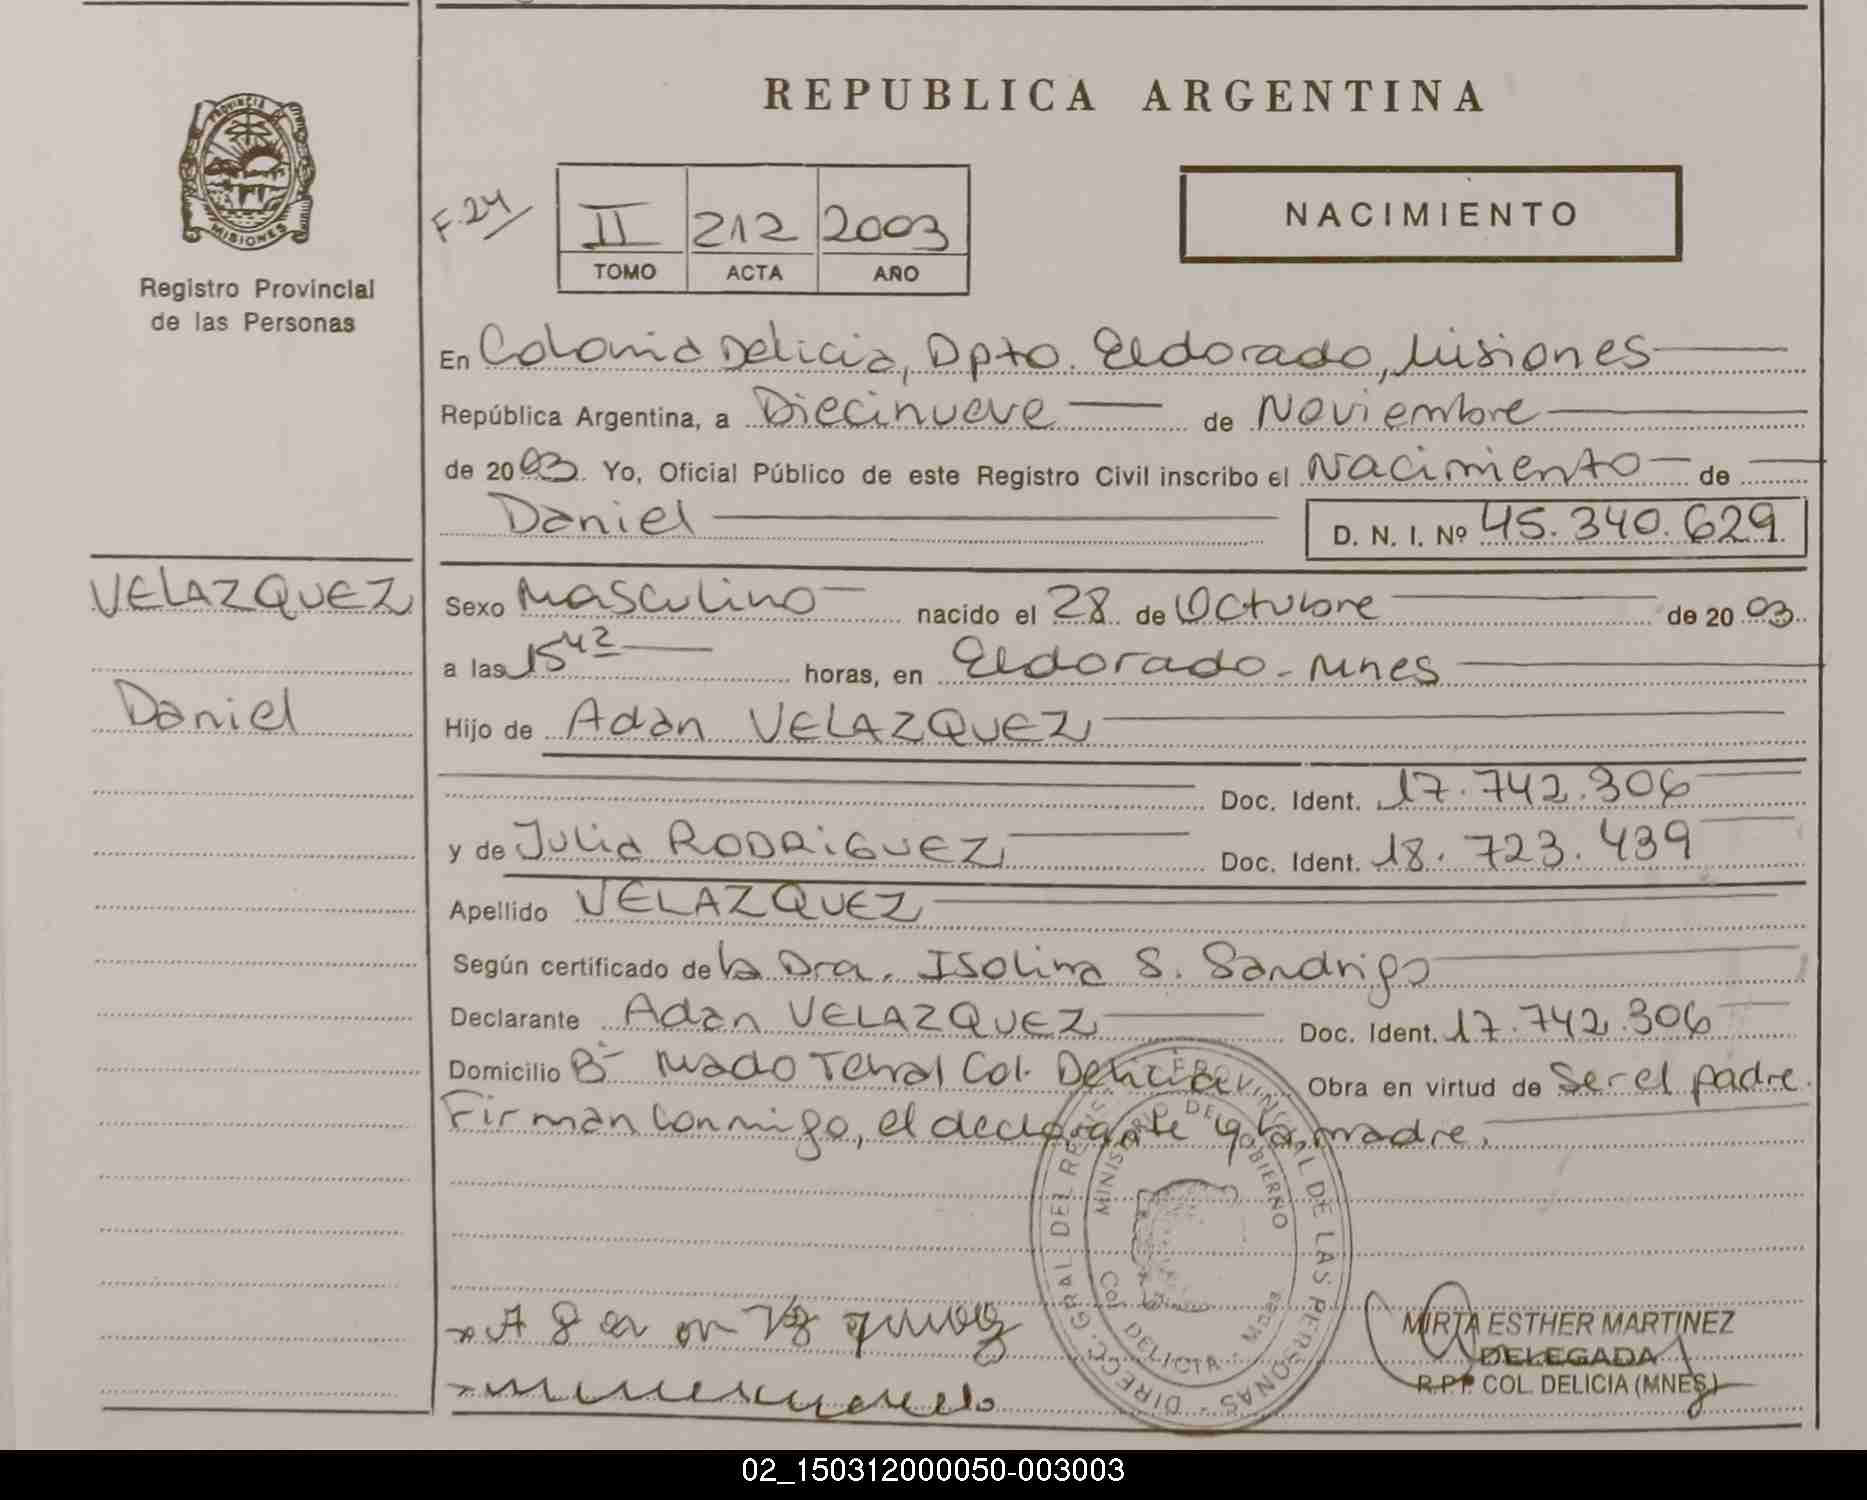 REPUBLICA ARGENTINA
PROVINCIA DE
MISIONES
Registro Provincial
de las Personas
F. 24
II 212 2003
TOMO ACTA AÑO
NACIMIENTO
En Colonia Delicia, Dpto. Eldorado, Misiones
República Argentina, a Diecinueve de Noviembre
de 2003. Yo, Oficial Público de este Registro Civil inscribo el Nacimiento de
Daniel D. N. I. Nº 45.340.629
VELAZQUEZ
Daniel
Sexo Masculino nacido el 28 de Octubre de 2003.
a las 15 42 horas, en Eldorado - Mnes
Hijo de Adan VELAZQUEZ
Doc. Ident. 17.742.306
y de Julia RODRIGUEZ Doc. Ident. 18.723.439
Apellido VELAZQUEZ
Según certificado de la Dra. Isolina S. Sandrigo
Declarante Adan VELAZQUEZ Doc. Ident. 17.742.306
Domicilio Bº Mado Col. Delicia Obra en virtud de Ser el padre.
Firman conmigo, el declarante y la madre.
DIRECC. GRAL DEL REG. PROVINCIAL DE LAS PERSONAS -
MINISTERIO DE GOBIERNO
Col. DELICIA - Mnes
MIRTA ESTHER MARTINEZ
DELEGADA
R.P.P. COL. DELICIA (MNES)
02_150312000050-003003